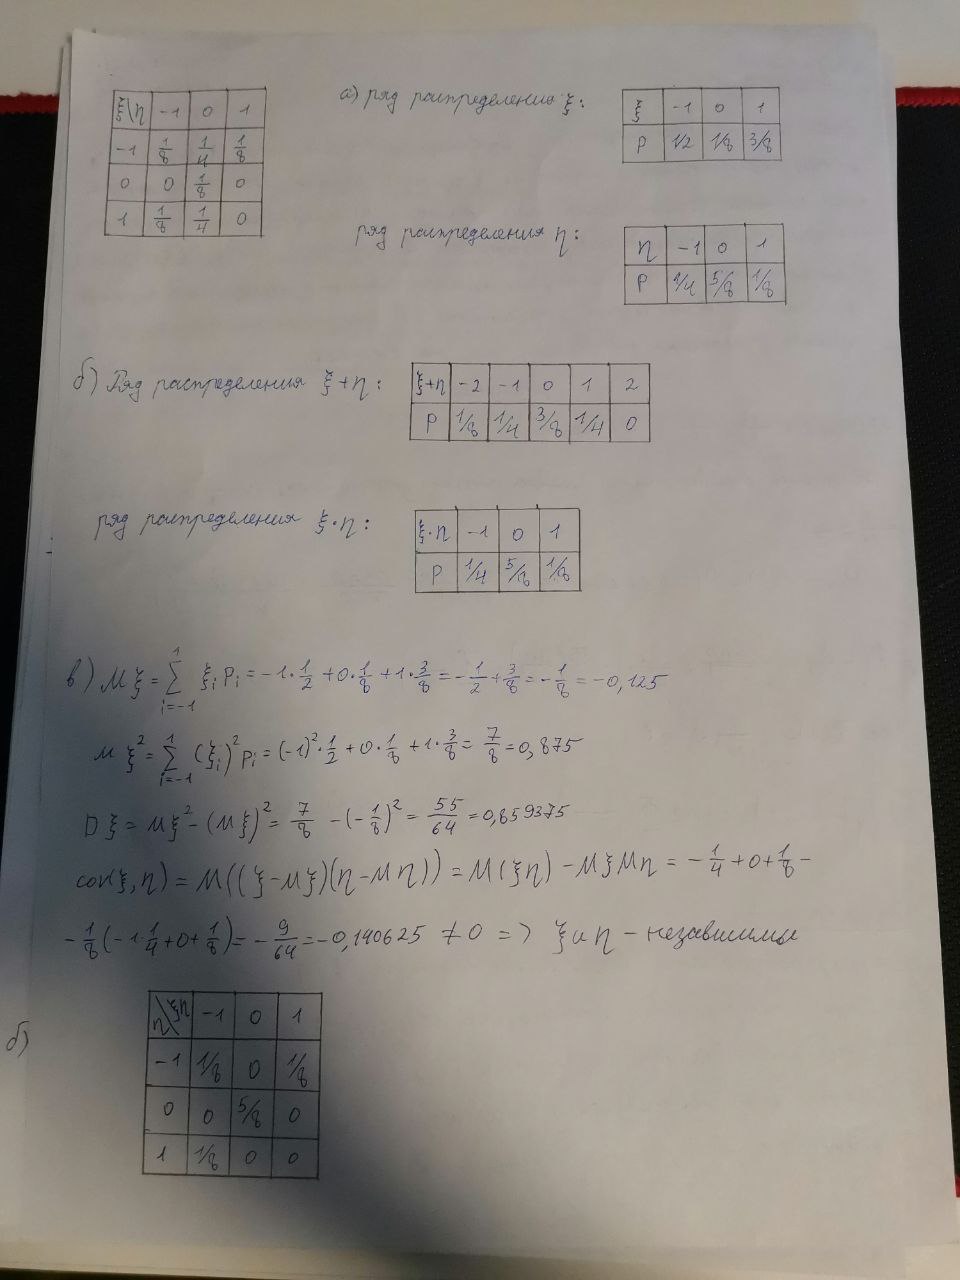 а) ряд распределения ξ:
ξ\η -1 0 1
-1 1/8 1/4 1/8
0 0 1/8 0
1 1/8 1/4 0
ξ -1 0 1
P 1/2 1/8 3/8
ряд распределения η:
η -1 0 1
P 1/4 5/8 1/8
б) Ряд распределения ξ+η:
ξ+η -2 -1 0 1 2
P 1/8 1/4 3/8 1/4 0
ряд распределения ξ·η:
ξ·η -1 0 1
P 1/4 5/8 1/8
в) Mξ = ∑_{i=-1}^{1} ξ_i P_i = -1·1/2 + 0·1/8 + 1·3/8 = -1/2 + 3/8 = -1/8 = -0,125
Mξ² = ∑_{i=-1}^{1} (ξ_i)² p_i = (-1)²·1/2 + 0·1/8 + 1·3/8 = 7/8 = 0,875
Dξ = Mξ² - (Mξ)² = 7/8 - (-1/8)² = 55/64 = 0,859375
cov(ξ,η) = M((ξ-Mξ)(η-Mη)) = M(ξη) - MξMη = -1/4 + 0 + 1/8 -
-1/8(-1·1/4 + 0 + 1/8) = -9/64 = -0,140625 ≠ 0 => ξ и η - независимы
б)
η\ξη -1 0 1
-1 1/8 0 1/8
0 0 5/8 0
1 1/8 0 0